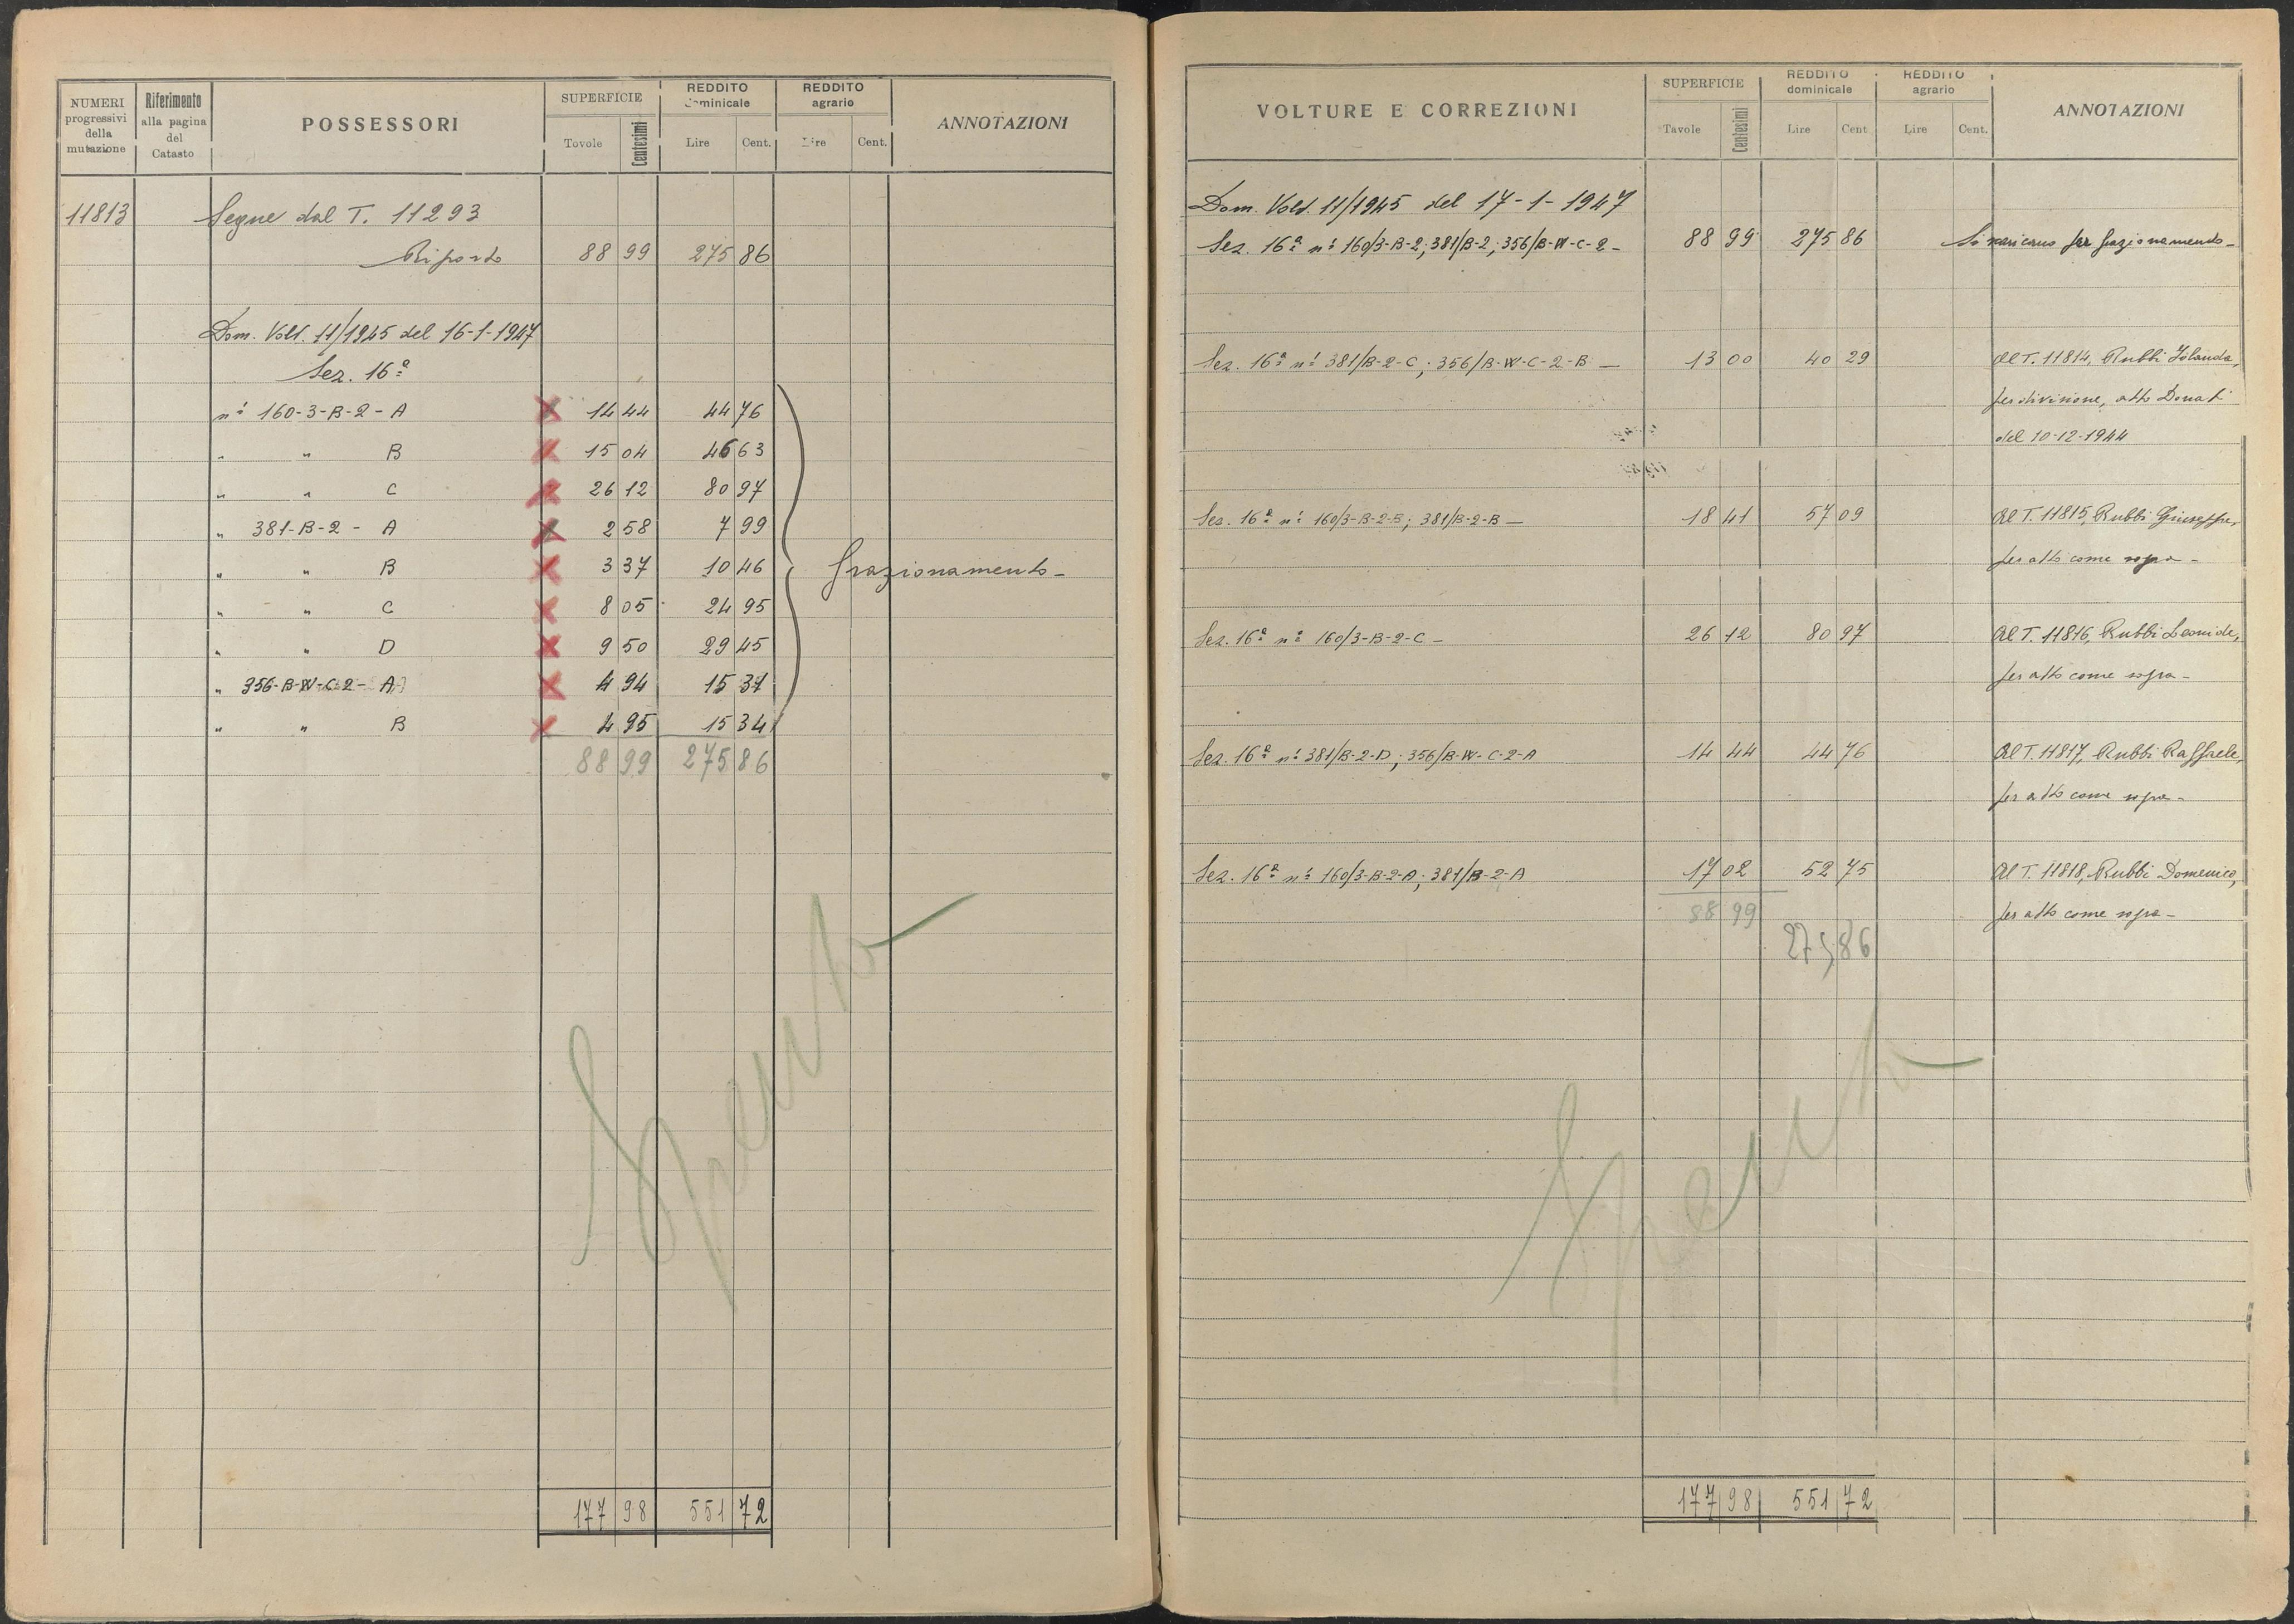 NUMERI progressivi della mutazione
Riferimento alla pagina del Catasto
POSSESSORI
SUPERFICIE
Tovole Centesimi
REDDITO dominicale
Lire Cent.
REDDITO agrario
Lire Cent.
ANNOTAZIONI
11813 Segue dal T. 11293
Riporto 88 99 275 86
Dom. Volt. 11/1945 del 16-1-1947
Sez. 16ª
nⁱ 160-3-B-2-A 14 44 44 76
" " B 15 04 46 63
" " C 26 12 80 97
" 381-B-2-A 2 58 7 99
" " B 3 37 10 46
" " C 8 05 24 95
" " D 9 50 29 45
" 356-B-W-C-2-A 4 94 15 31
" " B 4 95 15 34
frazionamento-
88 99 275 86
Spento
177 98 551 72
VOLTURE E CORREZIONI
SUPERFICIE
Tavole Centesimi
REDDITO dominicale
Lire Cent
REDDITO agrario
Lire Cent.
ANNOTAZIONI
Dom. Volt. 11/1945 del 17-1-1947
Sez. 16ª nⁱ 160/3-B-2; 381/B-2; 356/B-W-C-2- 88 99 275 86 Si scaricano per frazionamento-
Sez. 16ª nⁱ 381/B-2-C; 356/B-W-C-2-B- 13 00 40 29 Al T. 11814, Rubbi Iolanda,
per divisione, atto Donati
del 10-12-1944
Sez. 16ª nⁱ 160/3-B-2-B; 381/B-2-B- 18 41 57 09 Al T. 11815, Rubbi Giuseppe,
per atto come sopra-
Sez. 16ª nº 160/3-B-2-C- 26 12 80 97 Al T. 11816, Rubbi Leonilde,
per atto come sopra-
Sez. 16ª nⁱ 381/B-2-D; 356/B-W-C-2-A 14 44 44 76 Al T. 11817, Rubbi Raffaele,
per atto come sopra-
Sez. 16ª nⁱ 160/3-B-2-A; 381/B-2-A 17 02 52 75 Al T. 11818, Rubbi Domenico,
88 99 per atto come sopra-
275 86
Spento
177 98 551 72